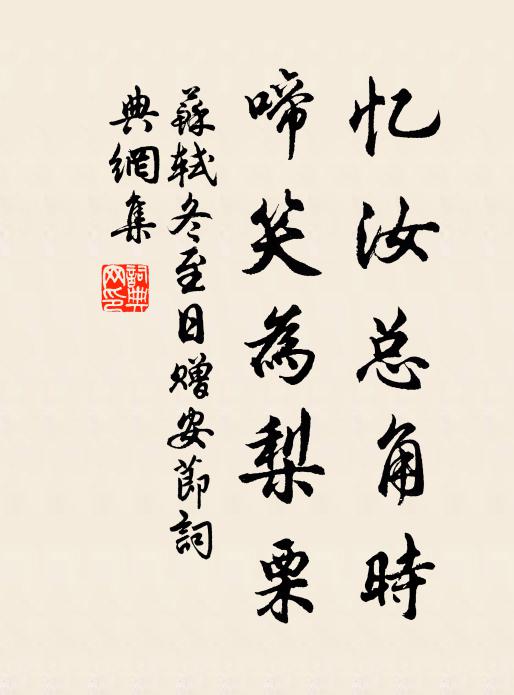 忆汝总角時
啼笑為梨栗
蘇軾冬至日赠安節詞
典網集
詞典
网印